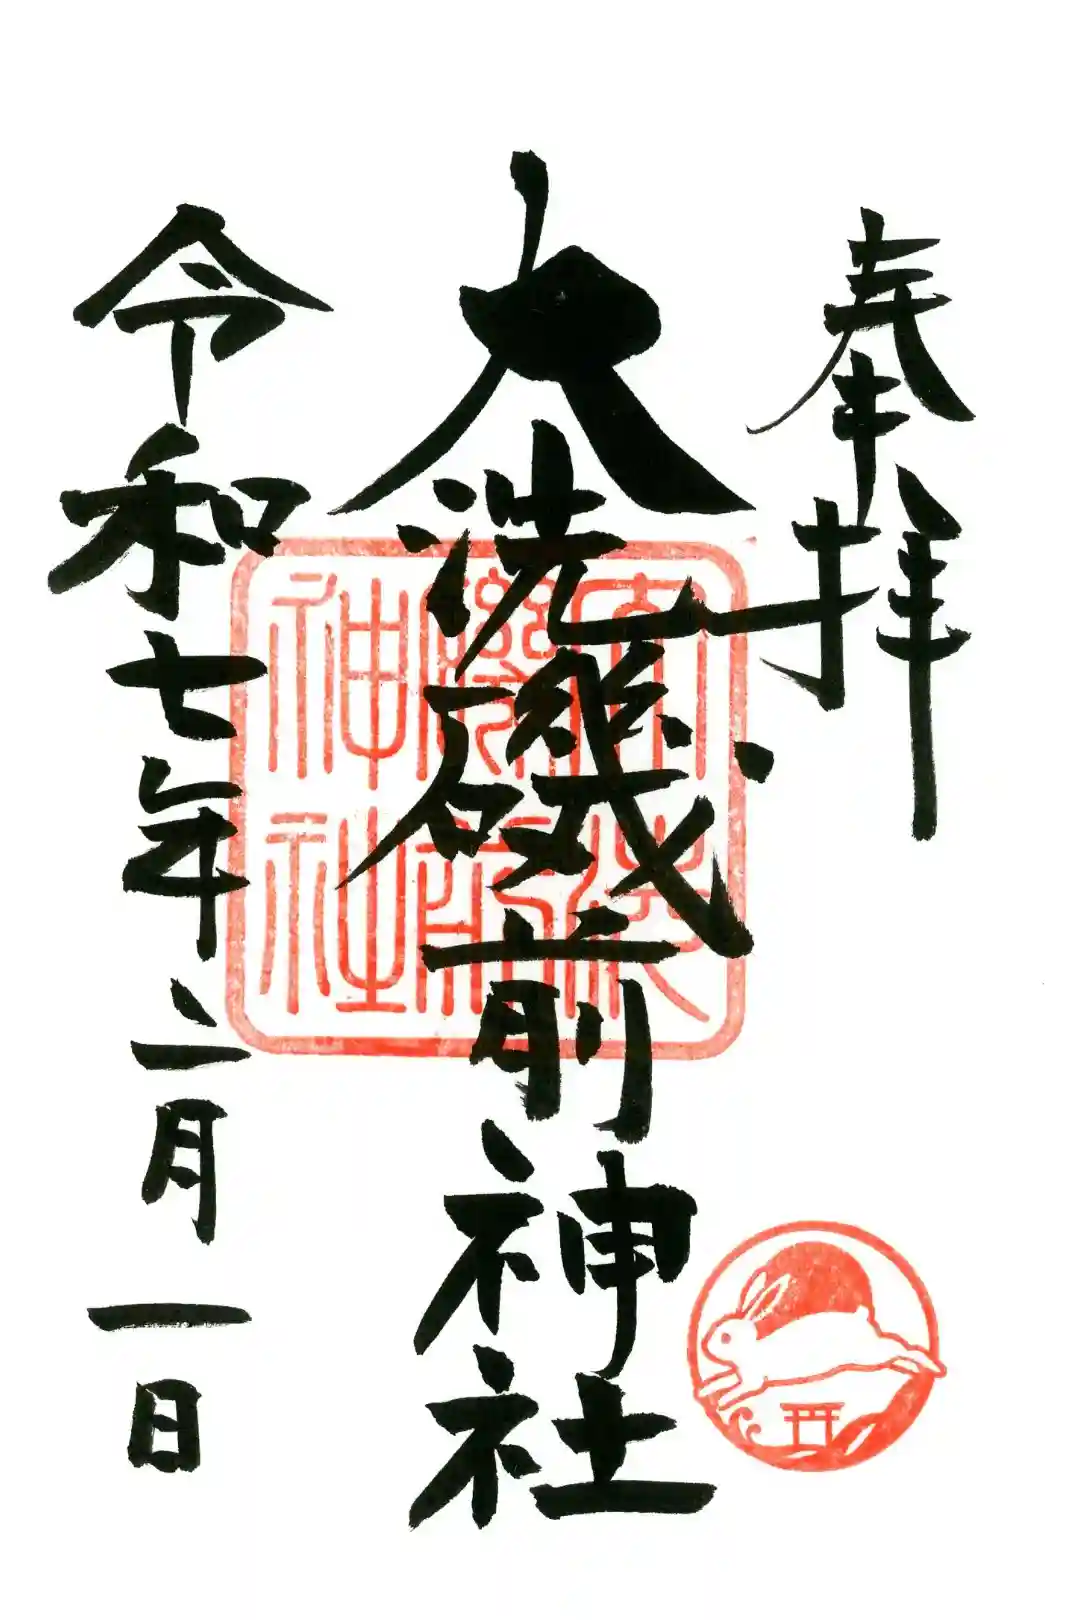 奉拝
大洗磯前神社
令和七年二月一日
大洗
磯前
神社